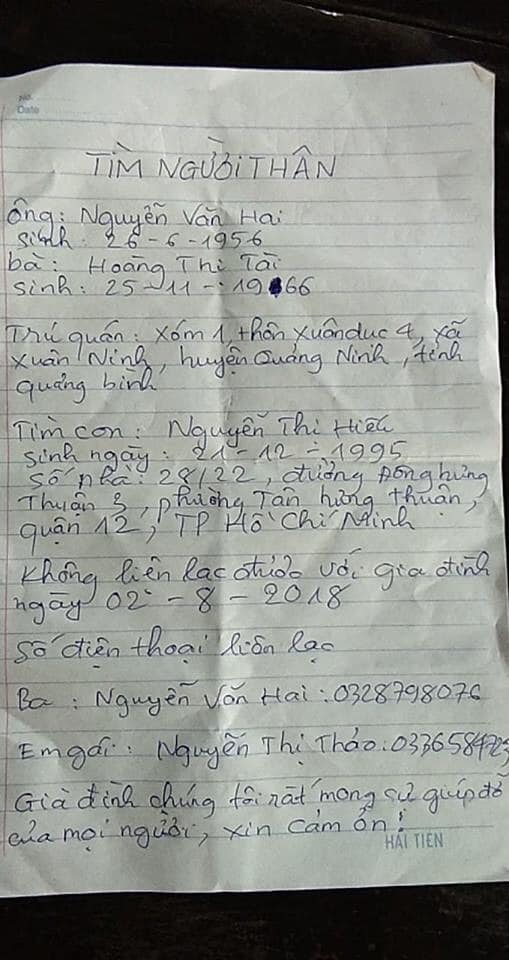 No.
Date
TÌM NGƯỜI THÂN
Ông: Nguyễn Văn Hai
sinh: 26-6-1956
bà: Hoàng Thị Tài
sinh: 25-11-1966
Trú quán: xóm 1 thôn xuân dục 4, xã
xuân Ninh, huyện Quảng Ninh, tỉnh
quảng bình
Tìm con: Nguyễn Thị Hiếu
sinh ngày: 21-12-1995
số nhà: 28/22, đường Đông hưng
Thuận 3, phường Tân hưng thuận,
quận 12, TP Hồ Chí Minh
Không liên lạc được với gia đình
ngày 02-8-2018
Số điện thoại liên lạc
Ba: Nguyễn Văn Hai: 0328798076
Em gái: Nguyễn Thị Thảo:
Gia đình chúng tôi rất mong sự giúp đỡ
của mọi người, xin cảm ơn!
HẢI TIẾN